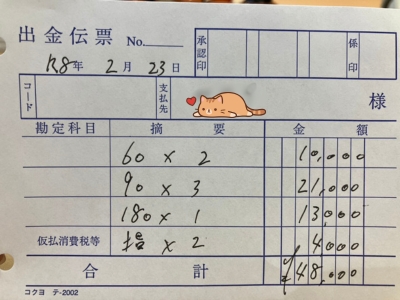 出金伝票 No. 承認印 係印
R8年 2月 23日
コード 支払先 様
勘定科目 摘要 金額
60 × 2 10,000
90 × 3 21,000
180 × 1 13,000
仮払消費税等 指 × 2 4000
合計 ¥48,000
コクヨ テ-2002